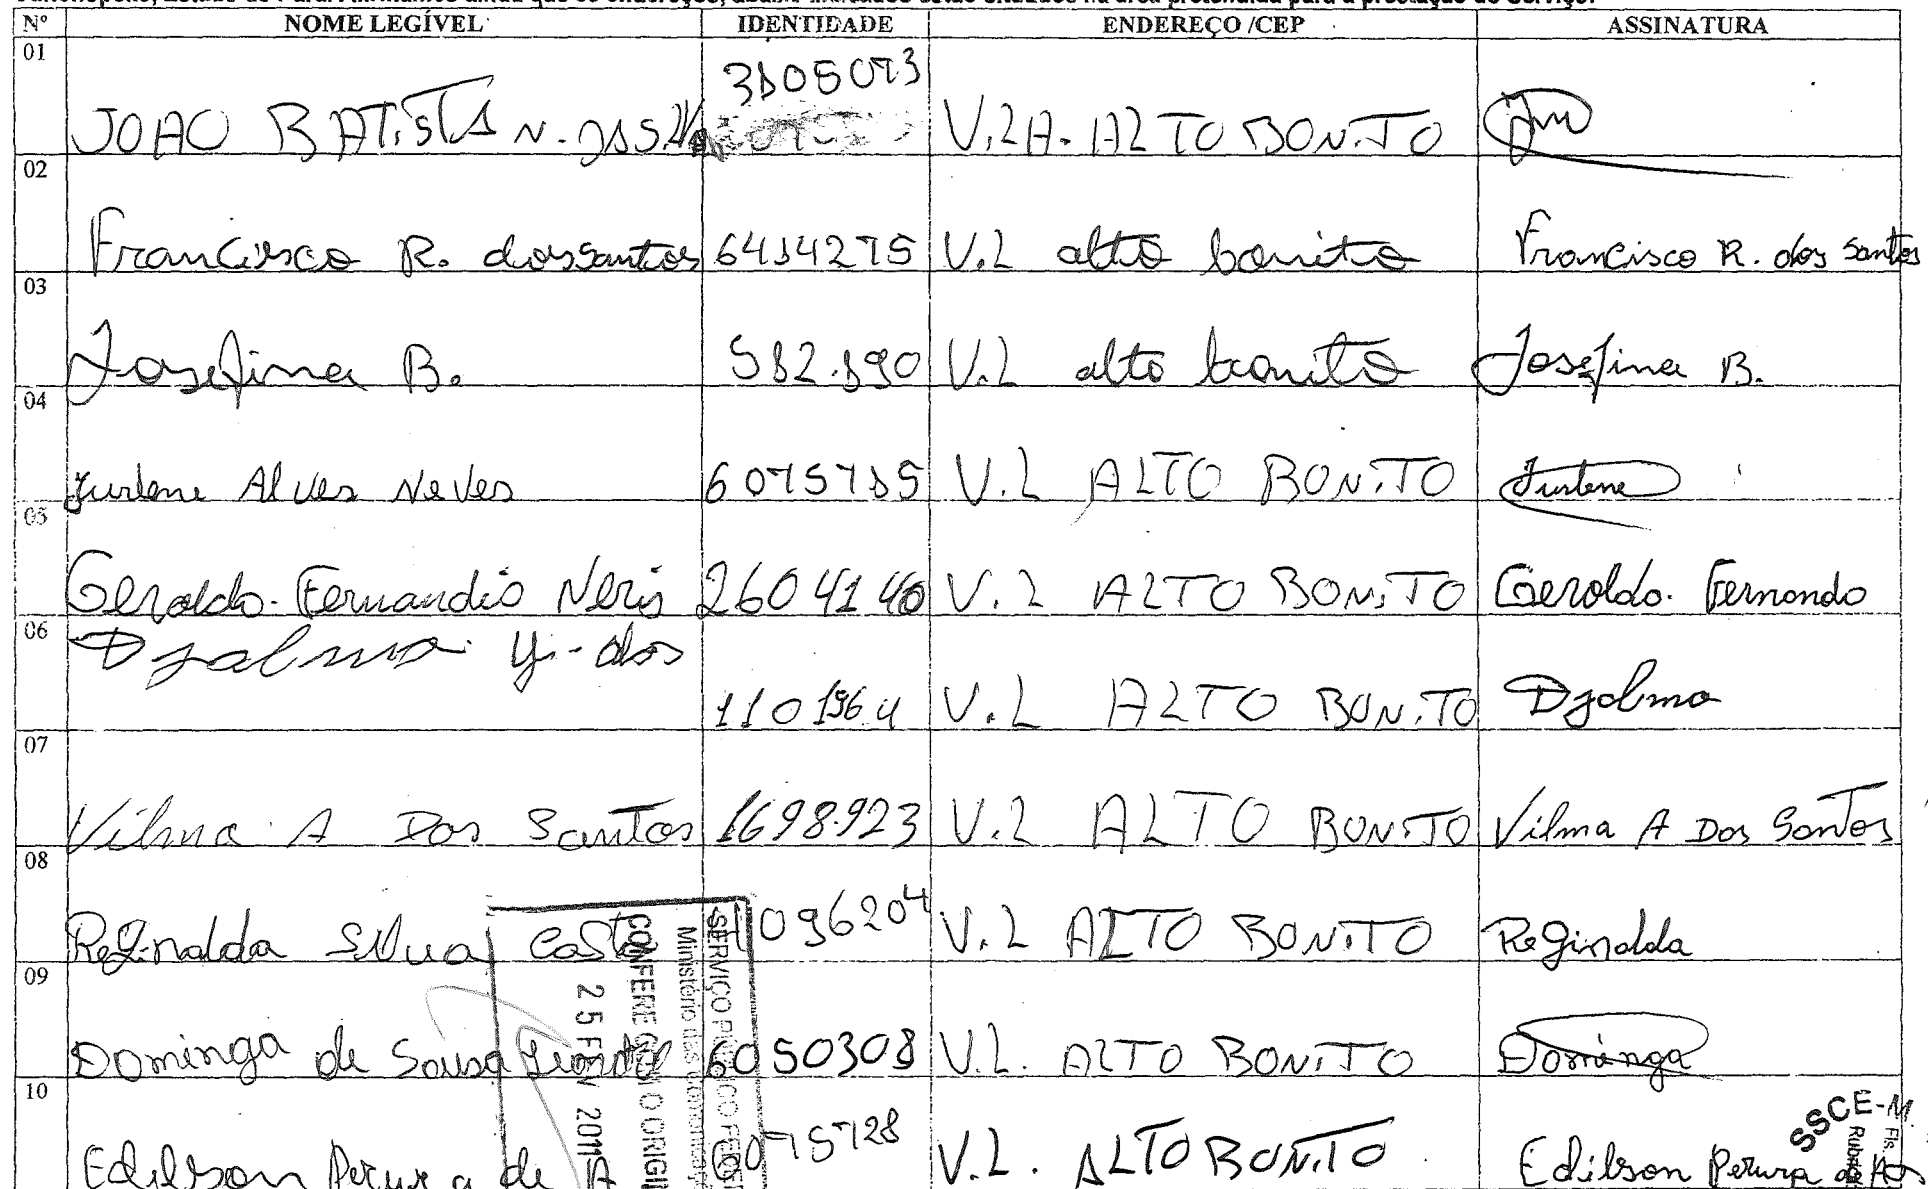 Nº NOME LEGÍVEL IDENTIDADE ENDEREÇO /CEP ASSINATURA
01 JOAO BATISTA N. V.LA. ALTO BONITO
02 Francisco R. dos santos 6414275 V.L alto bonito Francisco R. dos Santos
03 Josefina B. 512.190 V.L alto bonito Josefina B.
04 Alves Neves 6075715 V.L ALTO BONITO
05 Geraldo. Fernandio Neris V.L ALTO BONITO Geraldo. Fernando
06 Djalma dos V.L ALTO BONITO Djalma
07 Vilma A Dos Santos 1698923 V.L ALTO BONITO Vilma A Dos Santos
08 Reginalda Silva Costa V.L ALTO BONITO Reginalda
09 Dominga de Sousa 6050308 V.L. ALTO BONITO Dominga
10 Edilson de V.L. ALTO BONITO Edilson
SERVIÇO
Ministério das
CONFERE COM O ORIGI
25 FEV 2011
SSCE-M
Fls.